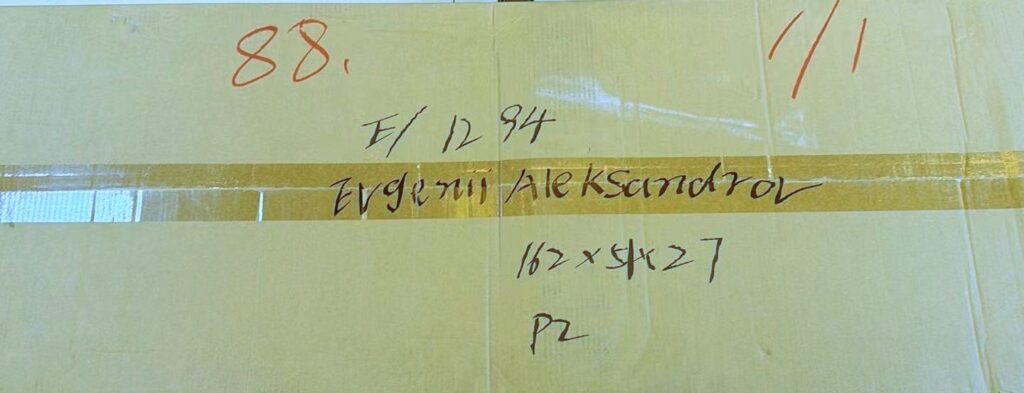 88. 1/1
E/ 1294
Evgenii Aleksandrov
162×51×27
P2